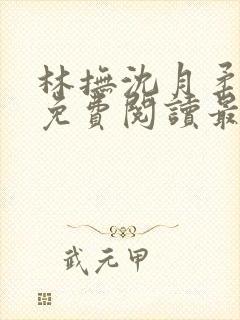 林撫沈月柔
免費閱讀最
武元甲